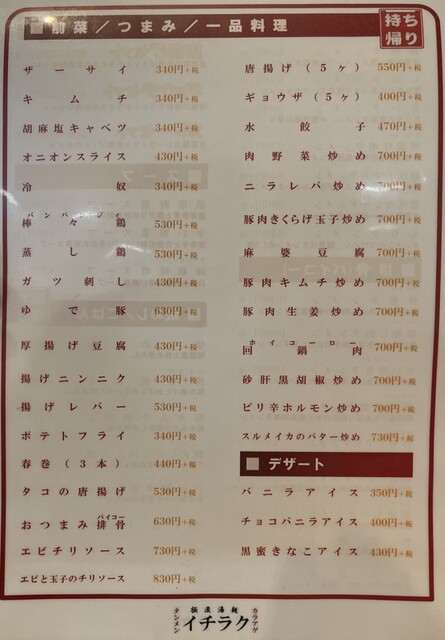 ■ 前菜／つまみ／一品料理
持ち帰り
ザーサイ 340円+税
キムチ 340円+税
胡麻塩キャベツ 340円+税
オニオンスライス 430円+税
冷奴 340円+税
バンバンジイ
棒々鶏 530円+税
蒸し鶏 530円+税
ガツ刺し 430円+税
ゆで豚 630円+税
厚揚げ豆腐 430円+税
揚げニンニク 430円+税
揚げレバー 530円+税
ポテトフライ 340円+税
春巻（3本） 440円+税
タコの唐揚げ 530円+税
パイコー
おつまみ排骨 630円+税
エビチリソース 730円+税
エビと玉子のチリソース 830円+税
唐揚げ（5ヶ） 550円+税
ギョウザ（5ヶ） 400円+税
水餃子 470円+税
肉野菜炒め 700円+税
ニラレバ炒め 700円+税
豚肉きくらげ玉子炒め 700円+税
麻婆豆腐 700円+税
豚肉キムチ炒め 700円+税
豚肉生姜炒め 700円+税
ホイコーロー
回鍋肉 700円+税
砂肝黒胡椒炒め 700円+税
ピリ辛ホルモン炒め 700円+税
スルメイカのバター炒め 730円+税
■ デザート
バニラアイス 350円+税
チョコバニラアイス 400円+税
黒蜜きなこアイス 430円+税
極濃湯麺
タンメン イチラク カラアゲ